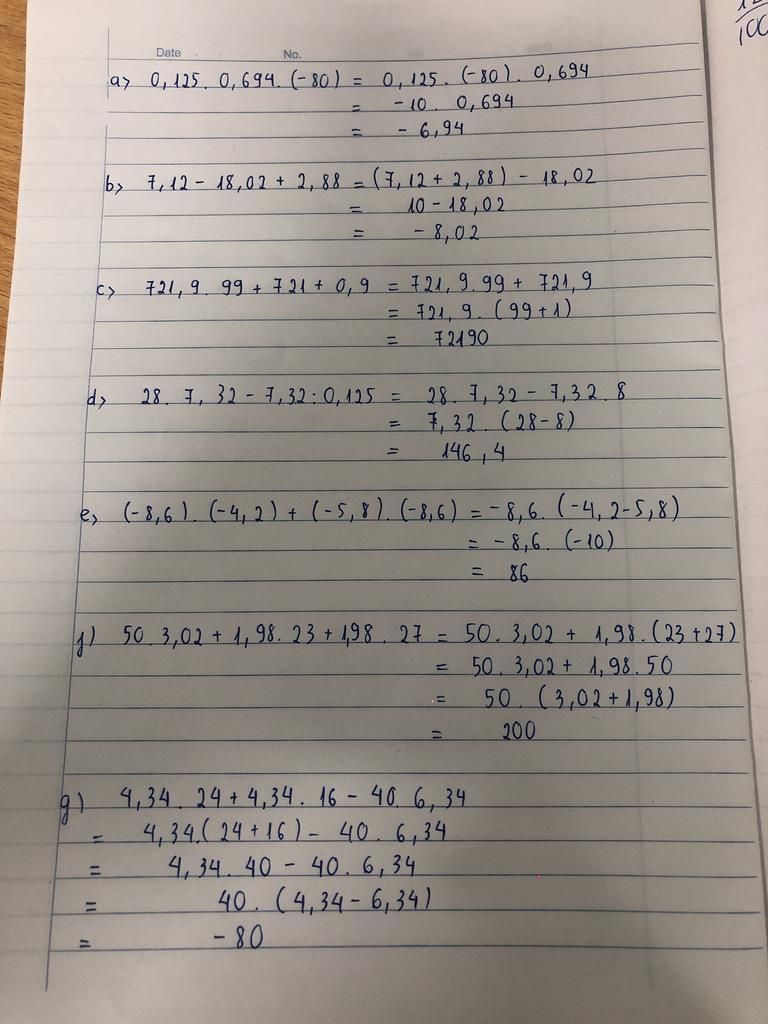 12
100
Date No.
a> 0,125. 0,694. (-80) = 0,125. (-80). 0,694
= -10. 0,694
= - 6,94
b> 7,12 - 18,02 + 2,88 = (7,12 + 2,88) - 18,02
= 10 - 18,02
= - 8,02
c> 721,9. 99 + 721 + 0,9 = 721,9.99 + 721,9
= 721,9. (99+1)
= 72190
d> 28. 7,32 - 7,32:0,125 = 28. 7,32 - 7,32.8
= 7,32. (28-8)
= 146,4
e> (-8,6). (-4,2) + (-5,8). (-8,6) = -8,6. (-4,2-5,8)
= -8,6. (-10)
= 86
f) 50. 3,02 + 1,98. 23 + 1,98. 27 = 50. 3,02 + 1,98.(23+27)
= 50. 3,02 + 1,98.50
= 50. (3,02+1,98)
= 200
g) 4,34. 24 + 4,34. 16 - 40. 6,34
= 4,34.(24+16) - 40. 6,34
= 4,34. 40 - 40. 6,34
= 40. (4,34 - 6,34)
= -80